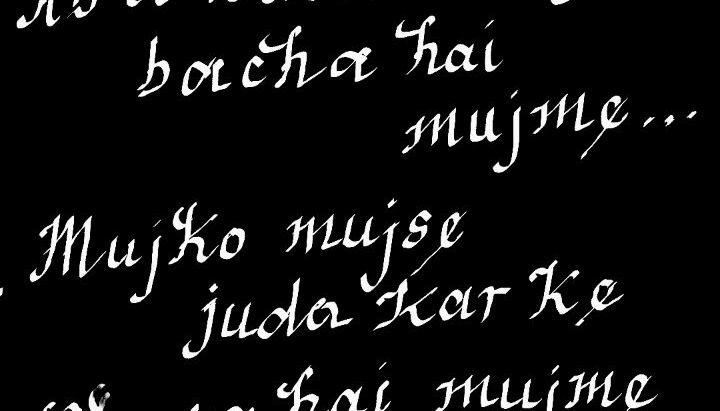 bacha hai
mujme...
Mujko mujse
juda kar ke
hai mujme